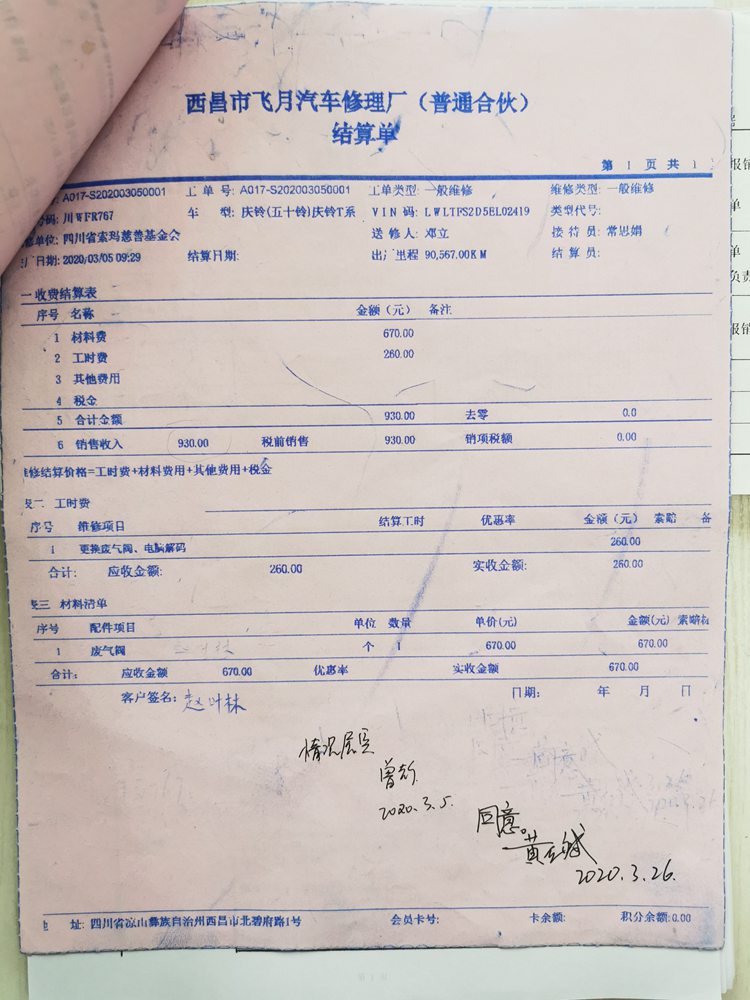 西昌市飞月汽车修理厂（普通合伙）
结算单
第 1 页 共 1
A017-S202003050001 工 单 号: A017-S202003050001 工单类型: 一般维修 维修类型: 一般维修
号码: 川WFR767 车 型: 庆铃(五十铃)庆铃T系 VIN 码: LWLTFS2D5EL02419 类型代号:
单位: 四川省索玛慈善基金会 送 修 人: 邓立 接 待 员: 常思娟
日期: 2020/03/05 09:29 结算日期: 出厂里程 90,567.00KM 结 算 员:
一 收费结算表
序号 名称 金额（元） 备注
1 材料费 670.00
2 工时费 260.00
3 其他费用
4 税金
5 合计金额 930.00 去零 0.0
6 销售收入 930.00 税前销售 930.00 销项税额 0.00
维修结算价格=工时费+材料费用+其他费用+税金
表二 工时费
序号 维修项目 结算工时 优惠率 金额（元） 索赔 备
1 更换废气阀、电脑解码 260.00
合计: 应收金额: 260.00 实收金额: 260.00
表三 材料清单
序号 配件项目 单位 数量 单价(元) 金额(元) 索赔
1 废气阀 个 1 670.00 670.00
合计: 应收金额 670.00 优惠率 实收金额 670.00
客户签名: 赵叶林 日期: 年 月 日
情况属实
2020.3.5.
同意。
2020.3.26.
址: 四川省凉山彝族自治州西昌市北碧府路1号 会员卡号: 卡余额: 积分余额:0.00
报销
单
单
负责
报销